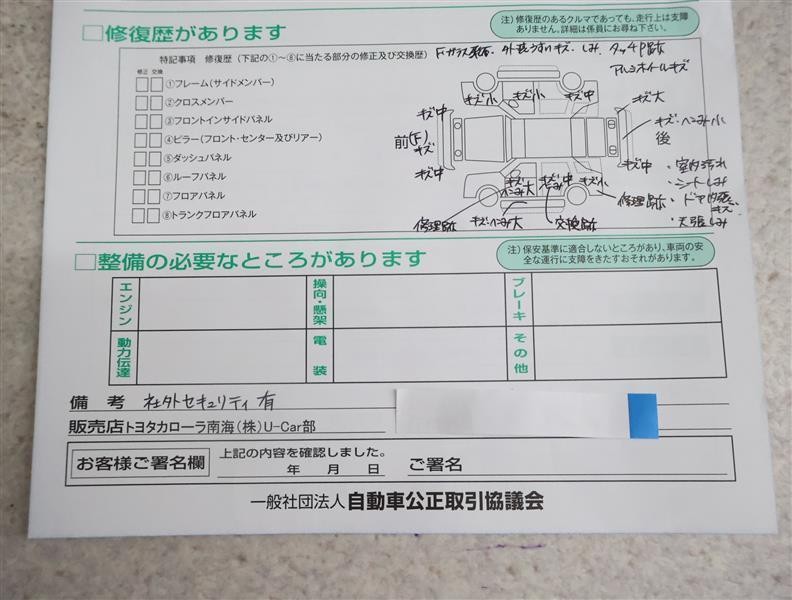 □修復歴があります
注）修復歴のあるクルマであっても、走行上は支障
ありません。詳細は係員にお尋ね下さい。
特記事項 修復歴（下記の①～⑧に当たる部分の修正及び交換歴）
外装うすいキズ、しみ、タッチP跡
アルミホイールキズ
修正 交換
①フレーム（サイドメンバー）
②クロスメンバー
③フロントインサイドパネル
④ピラー（フロント・センター及びリアー）
⑤ダッシュパネル
⑥ルーフパネル
⑦フロアパネル
⑧トランクフロアパネル
キズ小 キズ小 キズ中
キズ中
キズ大
前(F)
キズ
キズ・ヘコみ小
後
キズ中
キズ中
・室内汚れ
・シートしみ
キズ小
修理跡 キズ・ヘコみ大 交換跡 修理跡
・ドア内張
キズ
・天張しみ
□整備の必要なところがあります
注）保安基準に適合しないところがあり、車両の安
全な運行に支障をきたすおそれがあります。
エンジン
操向・懸架
ブレーキ
動力伝達
電装
その他
備考 社外セキュリティ有
販売店 トヨタカローラ南海（株）U-Car部
お客様ご署名欄
上記の内容を確認しました。
年 月 日
ご署名
一般社団法人 自動車公正取引協議会